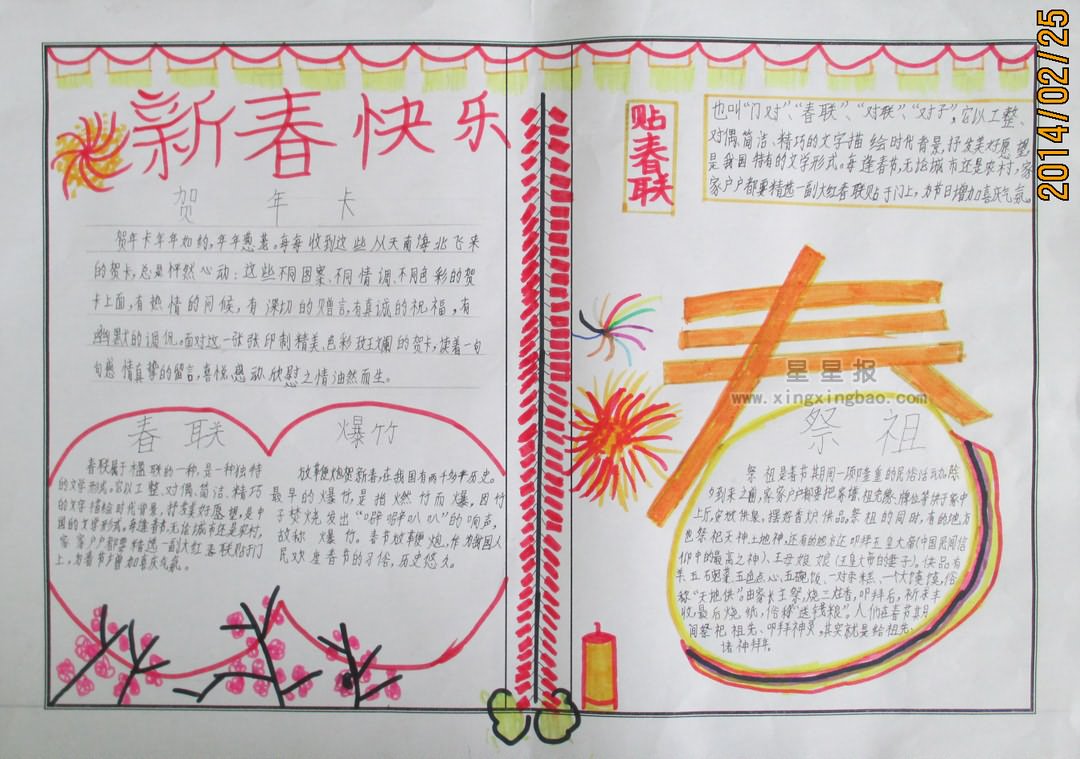 新春快乐
贺年卡
贺年卡年年如约,年年惠若。每每收到这些从天南海北飞来
的贺卡,总是怦然心动:这些不同图案、不同情调、不同色彩的贺
卡上面,有热情的问候,有深切的赠言,有真诚的祝福,有
幽默的调侃。面对这一张张印制精美、色彩斑斓的贺卡,读着一句
句感情真挚的留言,喜悦感动、欣慰之情油然而生。
春联
春联属于楹联的一种,是一种独特
的文学形式。它以工整、对偶、简洁、精巧
的文字描绘时代背景,抒发美好愿望,是中
国的文学形式。每逢春节,无论城市还是农村,
家家户户都要精选一副大红春联贴于门
上,为春节增加喜庆气氛。
爆竹
放鞭炮贺新春,在我国有两千多年历史。
最早的爆竹,是指燃竹而爆,因竹
子焚烧发出“噼噼叭叭”的响声,
故称爆竹。春节放鞭炮,作为我国人
民欢度春节的习俗,历史悠久。
贴春联
也叫“门对”、“春联”、“对联”、“对子”,它以工整、
对偶、简洁、精巧的文字描绘时代背景,抒发美好愿望,
是我国特有的文学形式。每逢春节,无论城市还是农村,家
家户户都要精选一副大红春联贴于门上,为节日增加喜庆气氛。
春
祭祖
祭祖是春节期间一项隆重的民俗活动。除
夕到来之前,家家户户都要把家谱、祖先像、牌位等供于家中
上厅,安放供桌,摆好香炉、供品。祭祖的同时,有的地方
也祭祀天神土地神,还有的地方还叩拜玉皇大帝(中国民间信
仰中的最高之神)、王母娘娘(玉皇大帝的妻子)。供品有
羊、五碗菜、五色点心、五碗饭、一对枣糕、一个大馍馍,俗
称“天地供”。由家长主祭,烧三炷香,叩拜后,祈求丰
收,最后烧纸,俗称“送钱粮”。人们在春节其月
间祭祀祖先、叩拜神灵,其实就是给祖先、
诸神拜年。
星星报
www.xingxingbao.com
2014/02/25